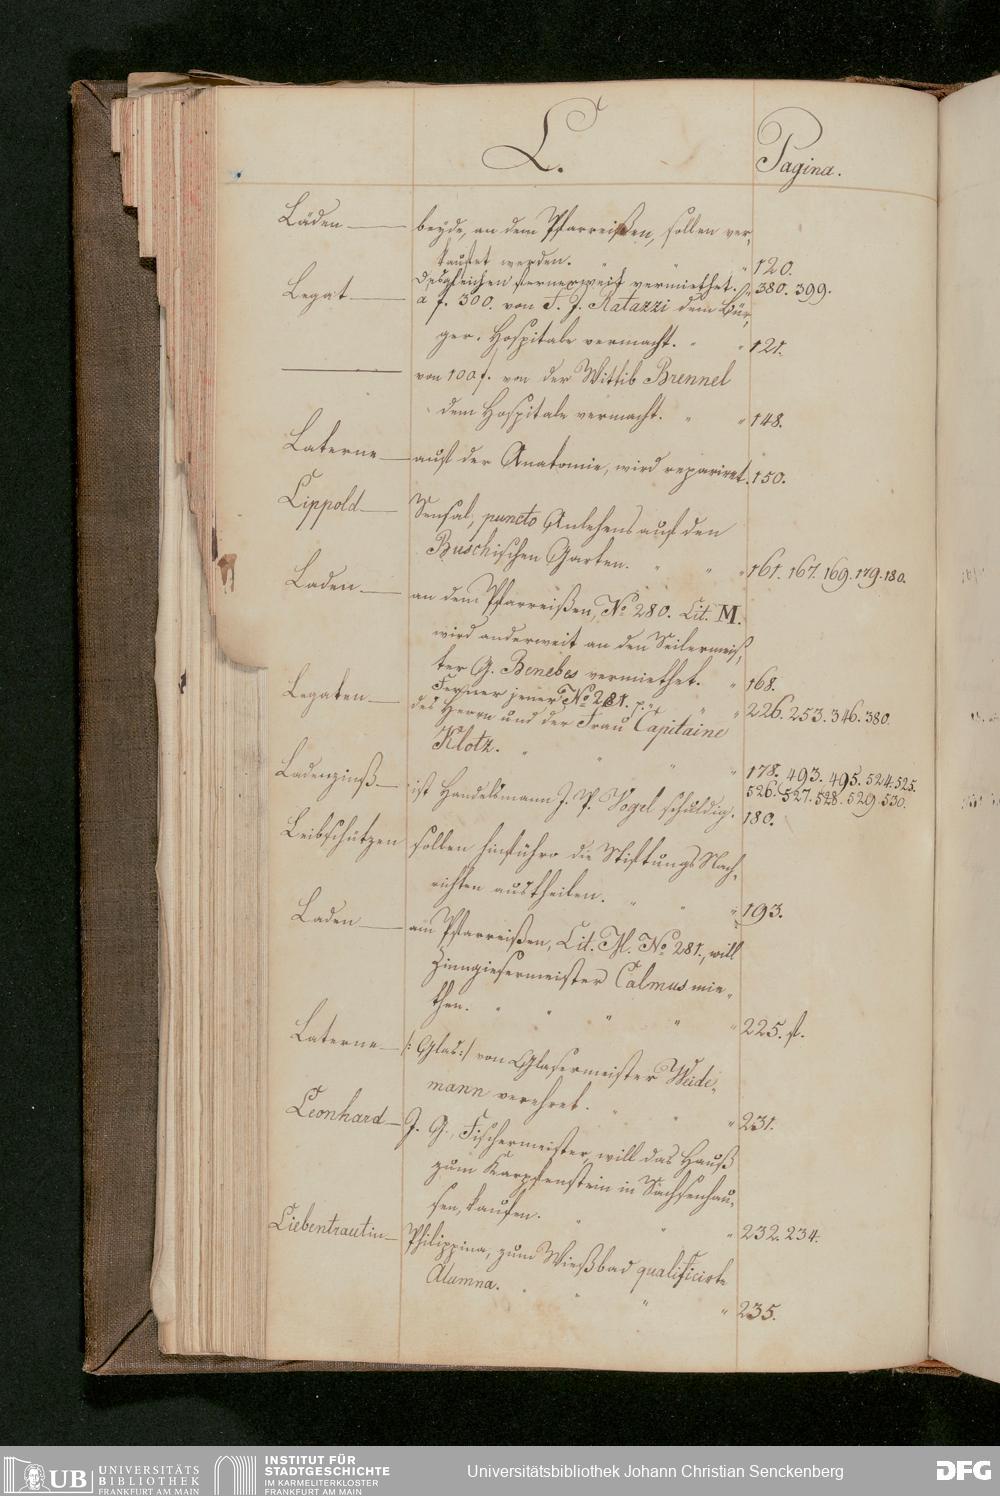 L.
Pagina.
Läden — beyde, an dem Pfarreißen, sollen ver-
kaufet werden. " " 120.
Desgleichen fernerweit vermiethet. 380. 399.
Legat — a f. 300. von F. J. Ratazzi dem Bür-
ger-Hospitale vermacht. " " 121.
— von 100 f. von der Wittib Brennel
dem Hospitale vermacht. " " 148.
Laterne — auf der Anatomie, wird repariret. 150.
Lippold — Sensal, puncto Anlehens auf den
Buschischen Garten. " " " 161. 167. 169. 179. 180.
Laden — an dem Pfarreißen, No 280. Lit. M.
wird anderweit an den Seilermeis-
ter G. Benebes vermiethet. " 168.
Ferner jener No 281. " " 226. 253. 346. 380.
Legaten — des Herrn und der Frau Capitaine
Klotz. " " 178. 493. 495. 524. 525.
526. 527. 528. 529. 530.
Ladenzinß — ist Handelsmann J. P. Vogel schuldig. 180.
Leibschützen sollen hinführo die Stiftungs Nach-
richten austheilen. " " " 193.
Laden — am Pfarreißen, Lit. M. No 281., will
Zinngiesermeister Calmus mie-
then. " " " " " 225. f.
Laterne — /: Glas :/ von Glasermeister Weide-
mann verehret. " " " 231.
Leonhard — J. G., Fischermeister, will das Hauß
zum Karpfenstein in Sachsenhau-
sen, kaufen. " " " 232. 234.
Liebentrautin — Philippina, zum Wießbad qualificirte
Alumna. " " " " 235.
UB UNIVERSITÄTS
BIBLIOTHEK
FRANKFURT AM MAIN
INSTITUT FÜR
STADTGESCHICHTE
IM KARMELITERKLOSTER
FRANKFURT AM MAIN
Universitätsbibliothek Johann Christian Senckenberg
DFG